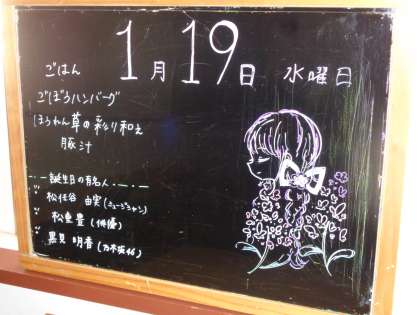 1月19日 水曜日
ごはん
ごぼうハンバーグ
ほうれん草の彩り和え
豚汁
誕生日の有名人
松任谷 由実(ミュージシャン)
松重豊(俳優)
黒見 明香(乃木坂46)